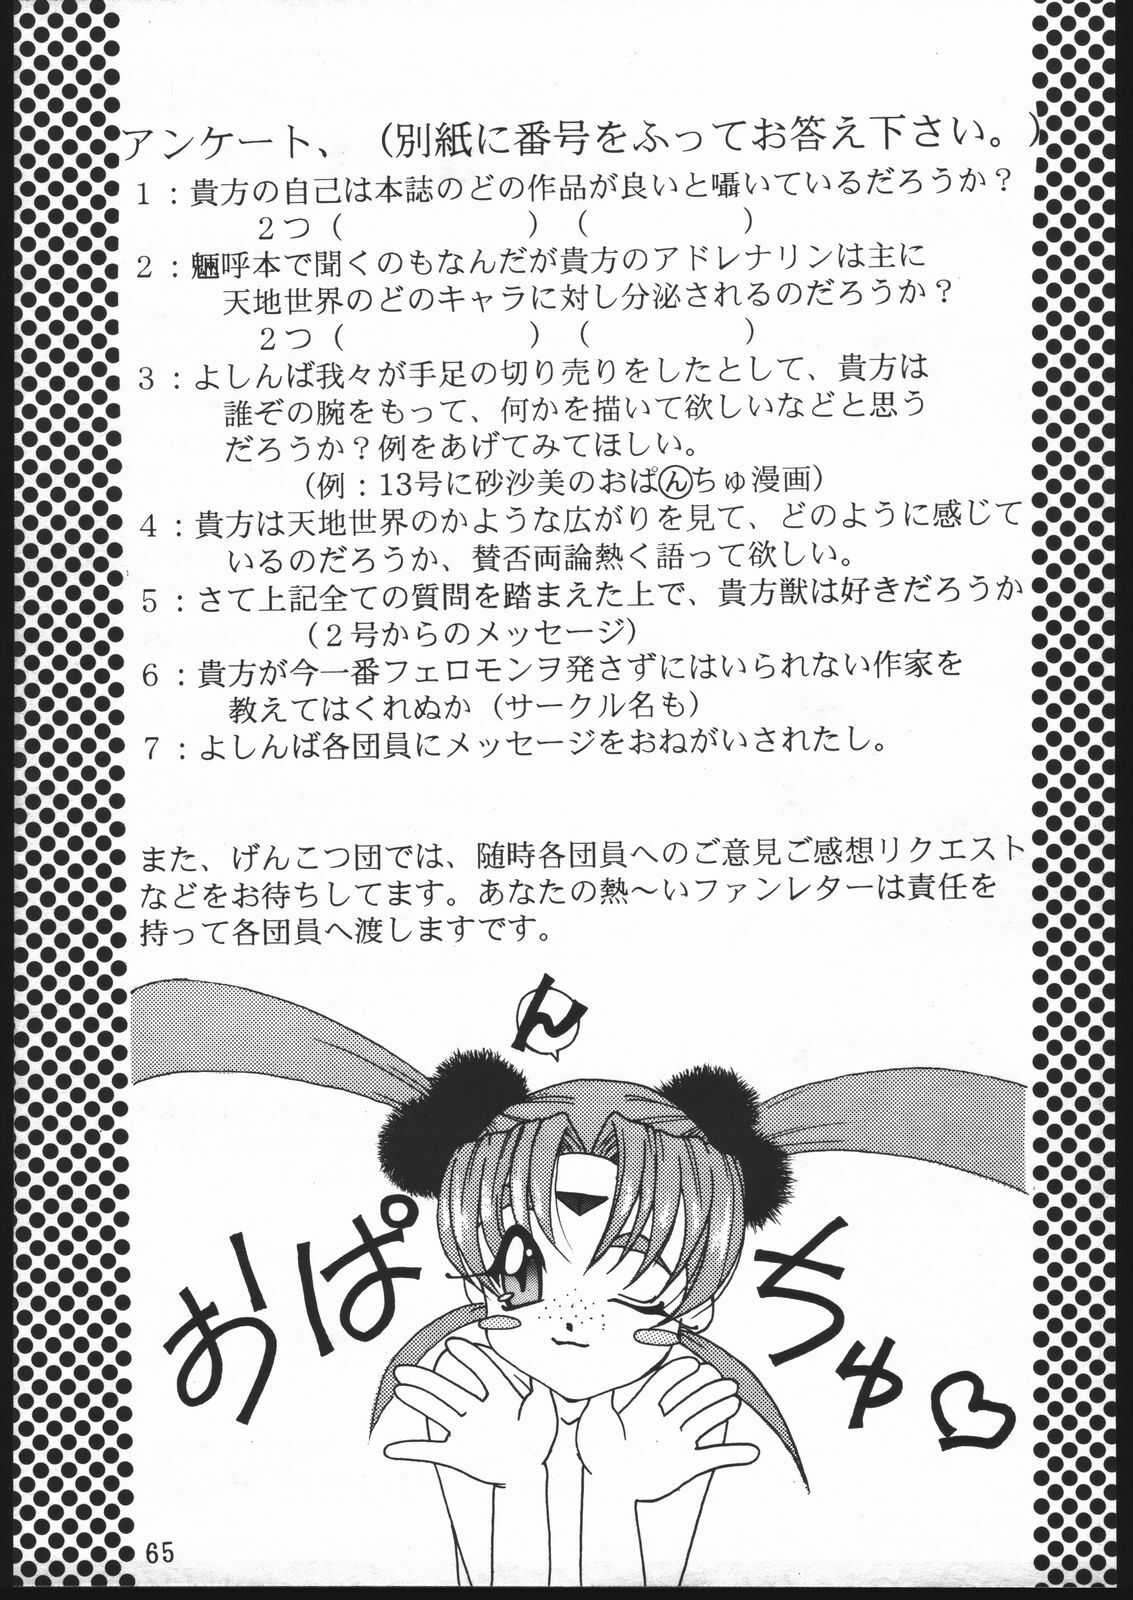 アンケート、（別紙に番号をふってお答え下さい。）
１：貴方の自己は本誌のどの作品が良いと囁いているだろうか？
２つ（　　　　　　）（　　　　　）
２：魎呼本で聞くのもなんだが貴方のアドレナリンは主に
天地世界のどのキャラに対し分泌されるのだろうか？
２つ（　　　　　　）（　　　　　）
３：よしんば我々が手足の切り売りをしたとして、貴方は
誰ぞの腕をもって、何かを描いて欲しいなどと思う
だろうか？例をあげてみてほしい。
（例：13号に砂沙美のおぱんちゅ漫画）
４：貴方は天地世界のかような広がりを見て、どのように感じて
いるのだろうか、賛否両論熱く語って欲しい。
５：さて上記全ての質問を踏まえた上で、貴方獣は好きだろうか
（２号からのメッセージ）
６：貴方が今一番フェロモンヲ発さずにはいられない作家を
教えてはくれぬか（サークル名も）
７：よしんば各団員にメッセージをおねがいされたし。
また、げんこつ団では、随時各団員へのご意見ご感想リクエスト
などをお待ちしてます。あなたの熱～いファンレターは責任を
持って各団員へ渡しますです。
おぱ
ん
ちゅ♡
65